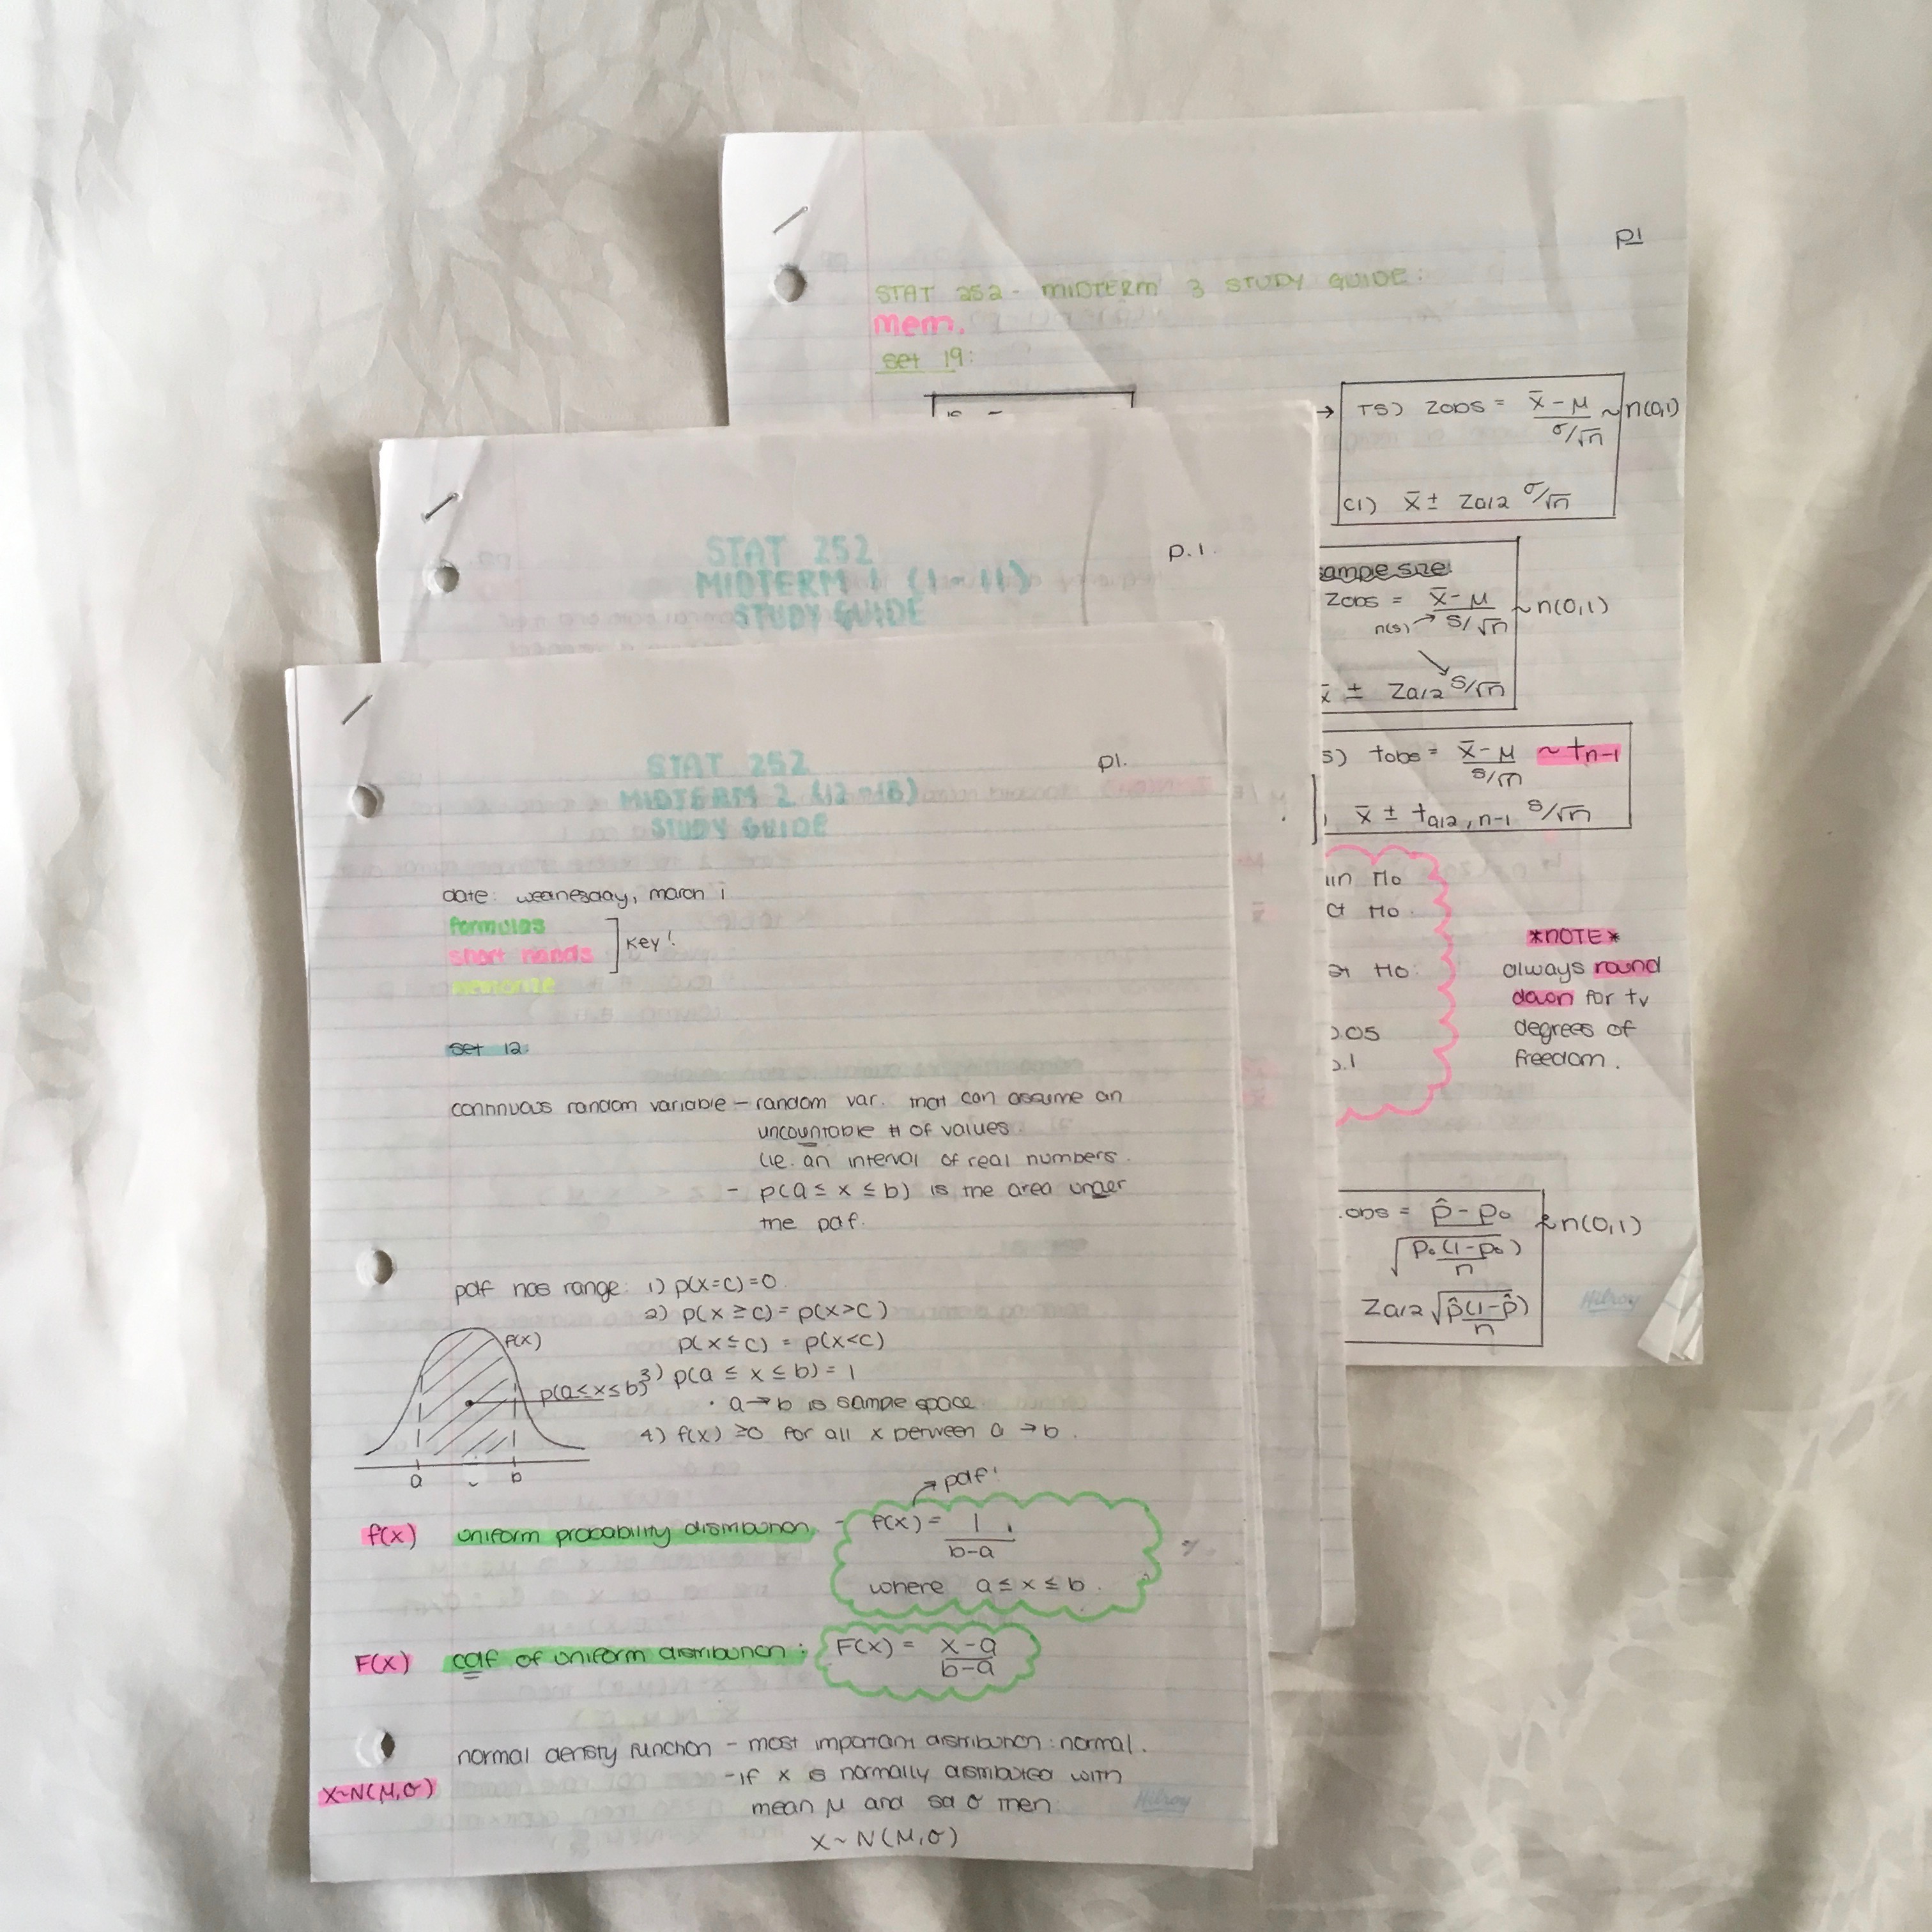 p1
STAT 252 - MIDTERM 3 STUDY GUIDE:
mem.
set 19:
→ TS) Zobs = x̄ - μ / σ/√n ~ n(0,1)
CI) x̄ ± Zα/2 σ/√n
sample size
Zobs = x̄ - μ / s/√n ~ n(0,1)
n(s) →
x̄ ± Zα/2 s/√n
S) tobs = x̄ - μ / s/√n ~ tn-1
) x̄ ± tα/2, n-1 s/√n
in Ho
ct Ho.
Ho:
0.05
0.1
*NOTE*
always round
down for tv
degrees of
freedom.
obs = p̂ - po / √(po(1-po)/n) ~ n(0,1)
Zα/2 √(p̂(1-p̂)/n)
Hilroy
p.1.
STAT 252
MIDTERM 1 (1-11)
STUDY GUIDE
p1.
STAT 252
MIDTERM 2 (12-18)
STUDY GUIDE
date: wednesday, march 1
formulas
short hands ] key!
memorize
set 12:
continuous random variable - random var. that can assume an
uncountable # of values.
(ie. an interval of real numbers.
- p(a ≤ x ≤ b) is the area under
the pdf.
pdf has range: 1) p(x=c)=0.
2) p(x ≥ c) = p(x>c)
p(x ≤ c) = p(x<c)
3) p(a ≤ x ≤ b) = 1
· a→b is sample space.
4) f(x) ≥0 for all x between a → b.
f(x)
p(a≤x≤b)
a b
→ pdf!
f(x) uniform probability distribution - f(x) = 1 / b-a
where a ≤ x ≤ b.
F(x) cdf of uniform distribution: F(x) = x-a / b-a
normal density function - most important distribution: normal.
X~N(μ,σ) -if x is normally distributed with
mean μ and sd σ then:
X ~ N(μ,σ)
Hilroy